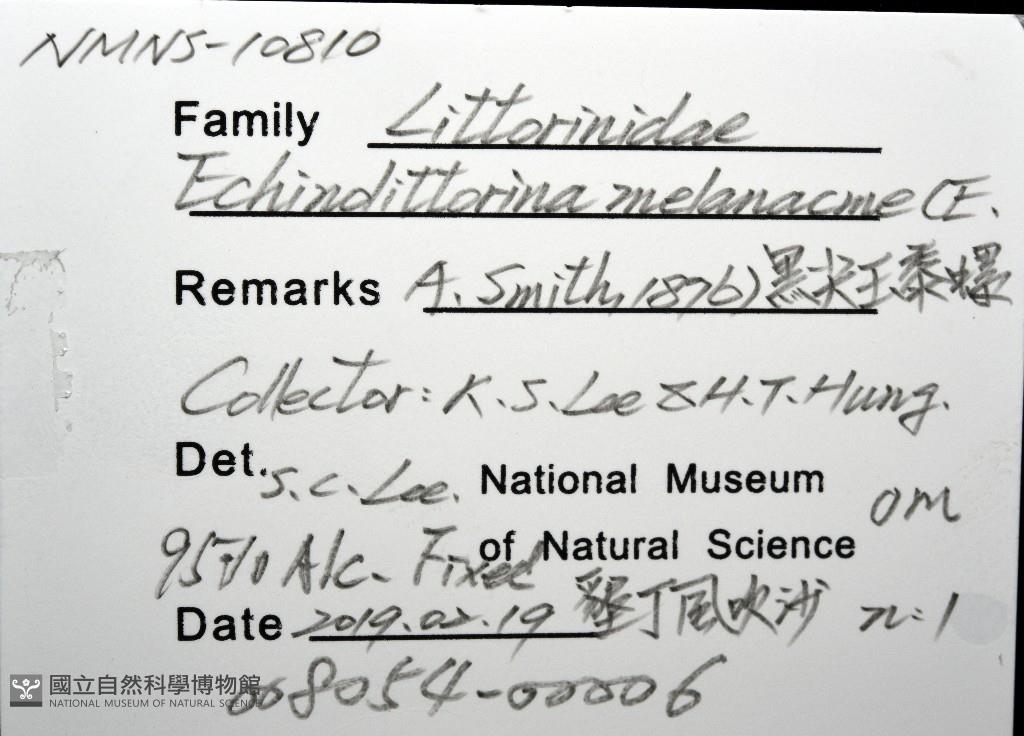 NMNS-10810
Family Littorinidae
Echinolittorina melanacme (E.
Remarks A. Smith, 1876) 黑尖玉黍螺
Collector: K.S. Lee & H.T. Hung.
Det. S.C. Lee. National Museum
0m
95% Alc. Fixed of Natural Science
Date 2019.02.19 墾丁風吹沙 n=1
008054-00006
國立自然科學博物館
NATIONAL MUSEUM OF NATURAL SCIENCE